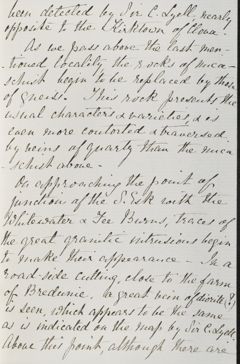 been detected by Sir C. Lyell, nearly
opposite to the Kirktown of Clova.
As we pass above the last men-
tioned locality the rocks of mica-
schist begin to be replaced by those
of Gneiss. This rock presents the
usual characters & varieties, & is
even more contorted & traversed
by veins of quartz than the mica
-schist above.
On approaching the point of
junction of the S. Esk with the
Whitewater & Fee Burns, traces of
the great granitic intrusions begin
to make their appearance. In a
road side cutting, close to the farm
of Bredunie, a great vein of diorite (?)
is seen, which appears to be the same
as is indicated on the map by Sir C. Lyell
Above this point, although there are